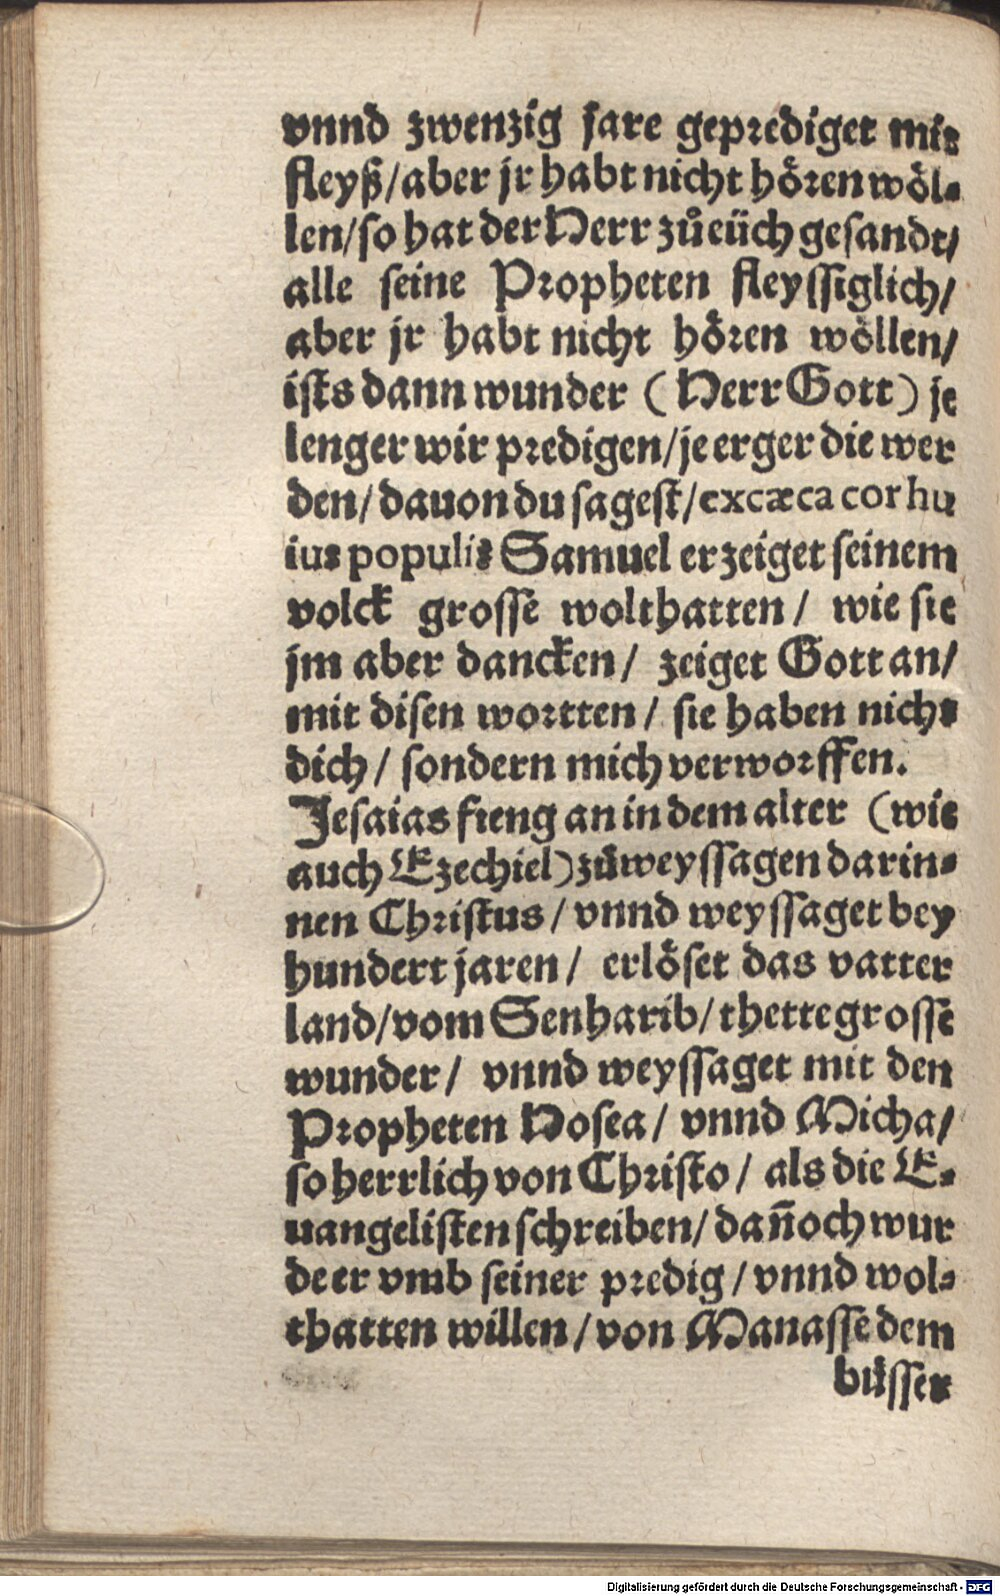 vnnd zwenzig jare geprediget mit
fleyß/aber jr habt nicht hören wöl-
len/so hat der Herr zů eüch gesandt/
alle seine Propheten fleyssiglich/
aber jr habt nicht hören wöllen/
ists dann wunder (Herr Gott) je
lenger wir predigen/je erger die wer
den/dauon du sagest/excæca cor hu
ius populi: Samuel erzeiget seinem
volck grosse wolthatten/ wie sie
jm aber dancken/ zeiget Gott an/
mit disen wortten/ sie haben nicht
dich/ sondern mich verworffen.
Jesaias fieng an in dem alter (wie
auch Ezechiel) zů weyssagen darin-
nen Christus/ vnnd weyssaget bey
hundert jaren/ erlöset das vatter
land/vom Senharib/thette grosse
wunder/ vnnd weyssaget mit den
Propheten Hosea/ vnnd Micha/
so herrlich von Christo/ als die E-
uangelisten schreiben/dañoch wur
de er vmb seiner predig/vnnd wol-
thatten willen/von Manasse dem
büsser
Digitalisierung gefördert durch die Deutsche Forschungsgemeinschaft - DFG